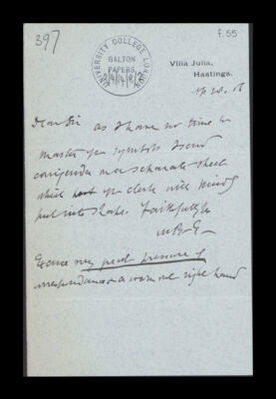 397
f.55
UNIVERSITY COLLEGE LONDON
GALTON
PAPERS
Villa Julia,
Hastings.
Dear Sir as I have no time to
master your symbols I send
corrigenda on a separate sheet
which your clerk will kindly
put into shape. Faithfully
Excuse my great pressure of
correspondence on a worn out right hand